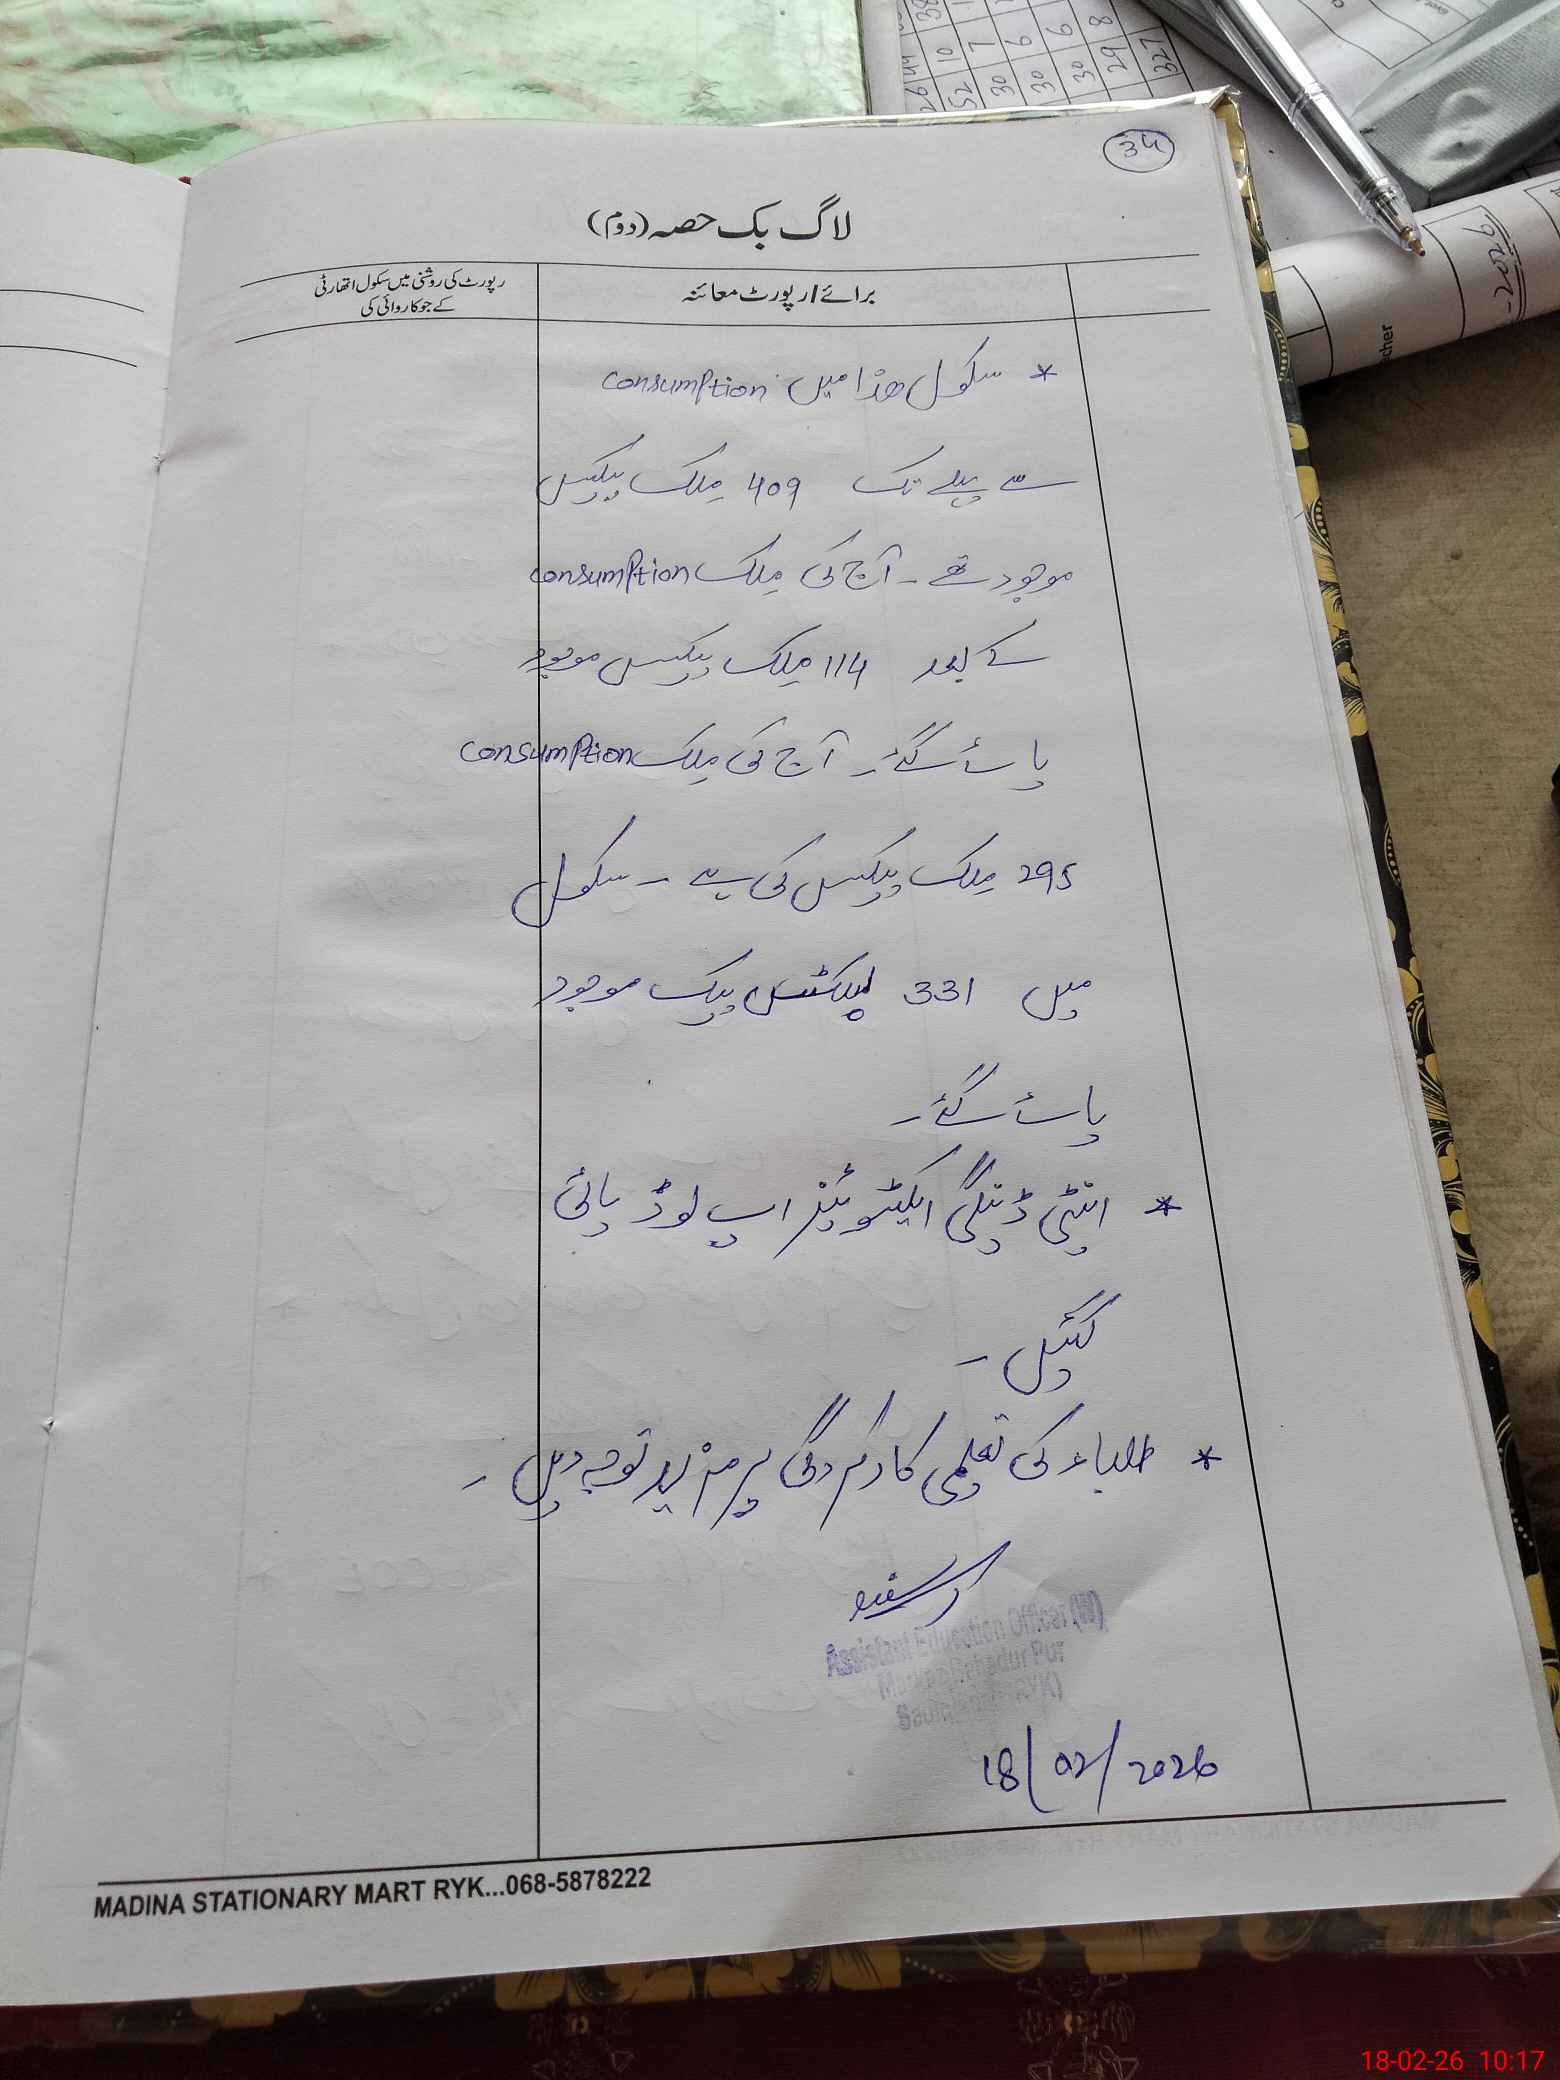 34
لاگ بک حصہ (دوم)
برائے/رپورٹ معائنہ
رپورٹ کی روشنی میں سکول اتھارٹی
کے جو کاروائی کی
* سکول ھذا میں consumption
سے پہلے تک 409 ملک پیکس
موجود تھے۔ آج کی ملک consumption
کے بعد 114 ملک پیکس موجود
پائے گئے۔ آج کی ملک consumption
295 ملک پیکس کی ہے ۔ سکول
میں 331 پیک موجود
پائے گئے۔
* اینٹی ڈینگی ایکٹیویٹیز اپ لوڈ پائی
گئیں ۔
* طلباء کی تعلیمی کارکردگی پر مزید توجہ دیں ۔
Assistant Education Officer (W)
Markaz Bahadur Pur
18/02/2026
MADINA STATIONARY MART RYK...068-5878222
2644 10 38
52 7
30 6
30 6
30 8
29
327
-2026
cher
18-02-26 10:17